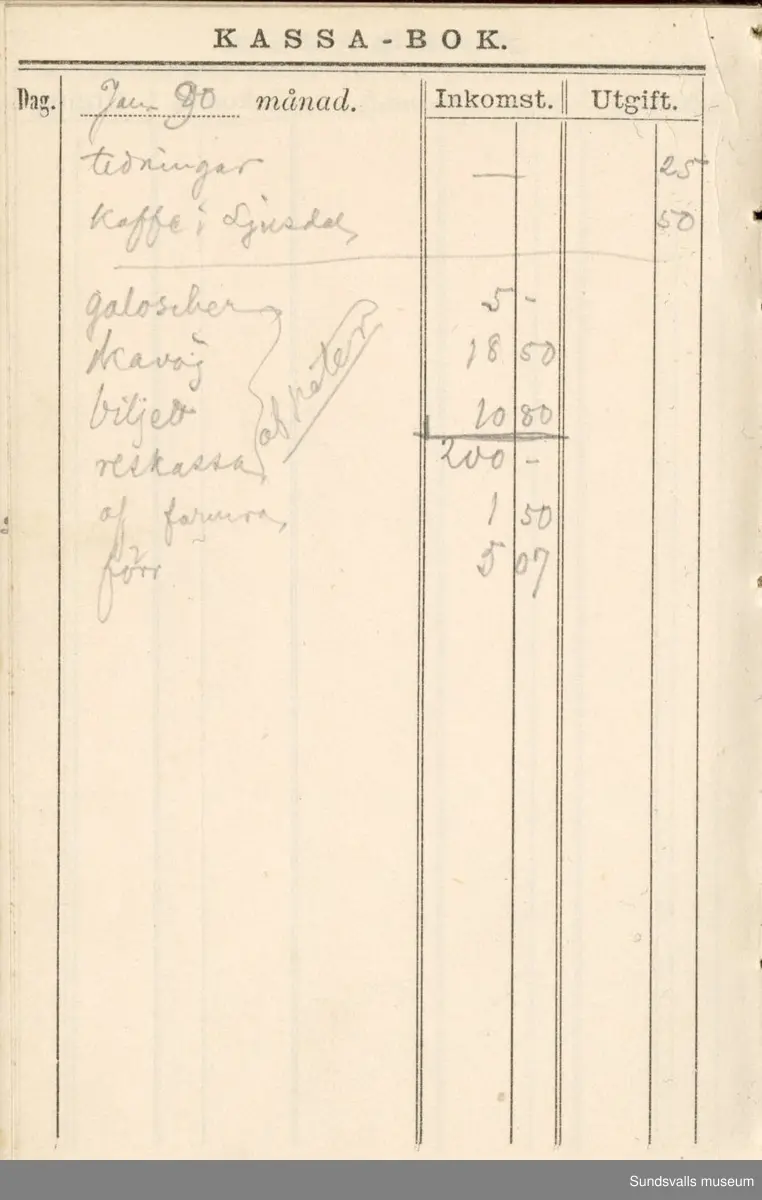 KASSA-BOK.
Dag. Jan 90 månad. Inkomst. Utgift.
tidningar — 25
kaffe i Ljusdal 50
galoscher 5 -
18 50
biljett 10 80
reskassa 200 -
af farmora 1 50
förr 5 07
Sundsvalls museum